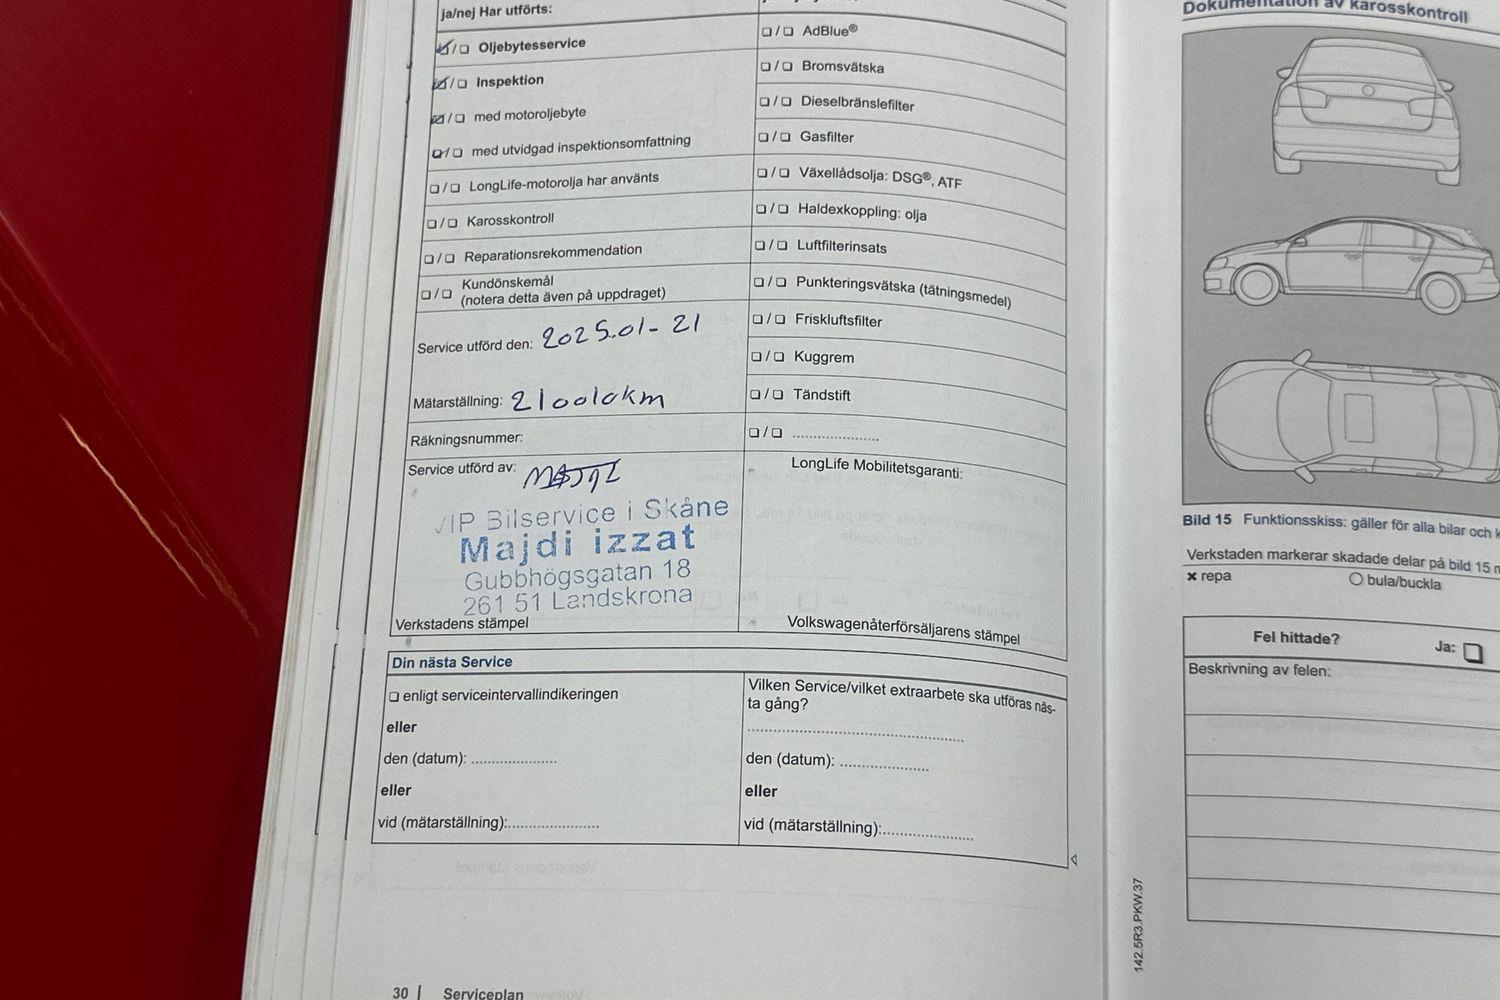 ja/nej Har utförts:
☑/❏ Oljebytesservice
☑/❏ Inspektion
☑/❏ med motoroljebyte
☑/❏ med utvidgad inspektionsomfattning
❏/❏ LongLife-motorolja har använts
❏/❏ Karosskontroll
❏/❏ Reparationsrekommendation
❏/❏ Kundönskemål
(notera detta även på uppdraget)
Service utförd den: 2025.01-21
Mätarställning: 210010km
Räkningsnummer:
Service utförd av:
VIP Bilservice i Skåne
Majdi izzat
Gubbhögsgatan 18
261 51 Landskrona
Verkstadens stämpel
❏/❏ AdBlue®
❏/❏ Bromsvätska
❏/❏ Dieselbränslefilter
❏/❏ Gasfilter
❏/❏ Växellådsolja: DSG®, ATF
❏/❏ Haldexkoppling: olja
❏/❏ Luftfilterinsats
❏/❏ Punkteringsvätska (tätningsmedel)
❏/❏ Friskluftsfilter
❏/❏ Kuggrem
❏/❏ Tändstift
❏/❏ .....................
LongLife Mobilitetsgaranti:
Volkswagenåterförsäljarens stämpel
Din nästa Service
❏ enligt serviceintervallindikeringen
eller
den (datum): .....................
eller
vid (mätarställning):.....................
Vilken Service/vilket extraarbete ska utföras näs-
ta gång?
den (datum): .....................
eller
vid (mätarställning):.....................
30 | Serviceplan
142.5R3.PKW.37
Dokumentation av karosskontroll
Bild 15 Funktionsskiss: gäller för alla bilar och
Verkstaden markerar skadade delar på bild 15
× repa
○ bula/buckla
Fel hittade?
Ja: ❏
Beskrivning av felen: